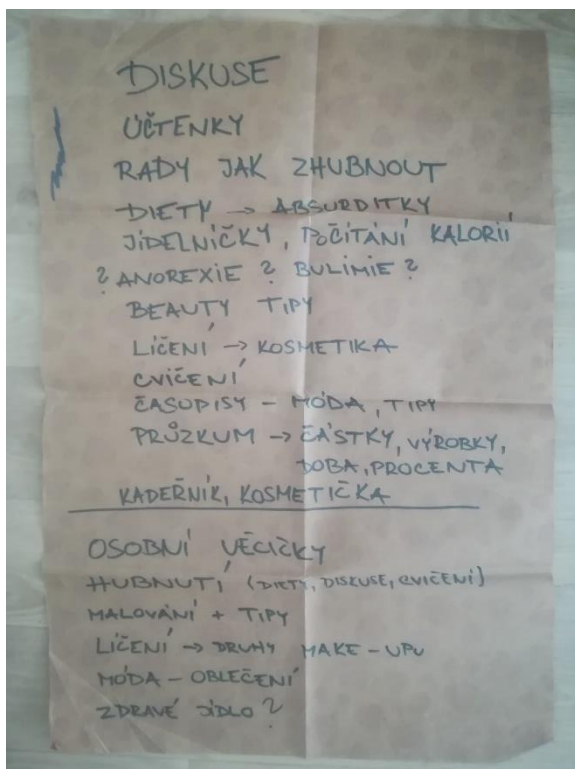 DISKUSE
ÚČTENKY
RADY JAK ZHUBNOUT
DIETY → ABSURDITKY
JÍDELNÍČKY, POČÍTÁNÍ KALORIÍ
? ANOREXIE ? BULIMIE ?
BEAUTY TIPY
LÍČENÍ → KOSMETIKA
CVIČENÍ
ČASOPISY - MÓDA, TIPY
PRŮZKUM → ČÁSTKY, VÝROBKY,
DOBA, PROCENTA
KADEŘNÍK, KOSMETIČKA
OSOBNÍ VĚCIČKY
HUBNUTÍ (DIETY, DISKUSE, CVIČENÍ)
MALOVÁNÍ + TIPY
LÍČENÍ → DRUHY MAKE-UPU
MÓDA - OBLEČENÍ
ZDRAVÉ JÍDLO ?